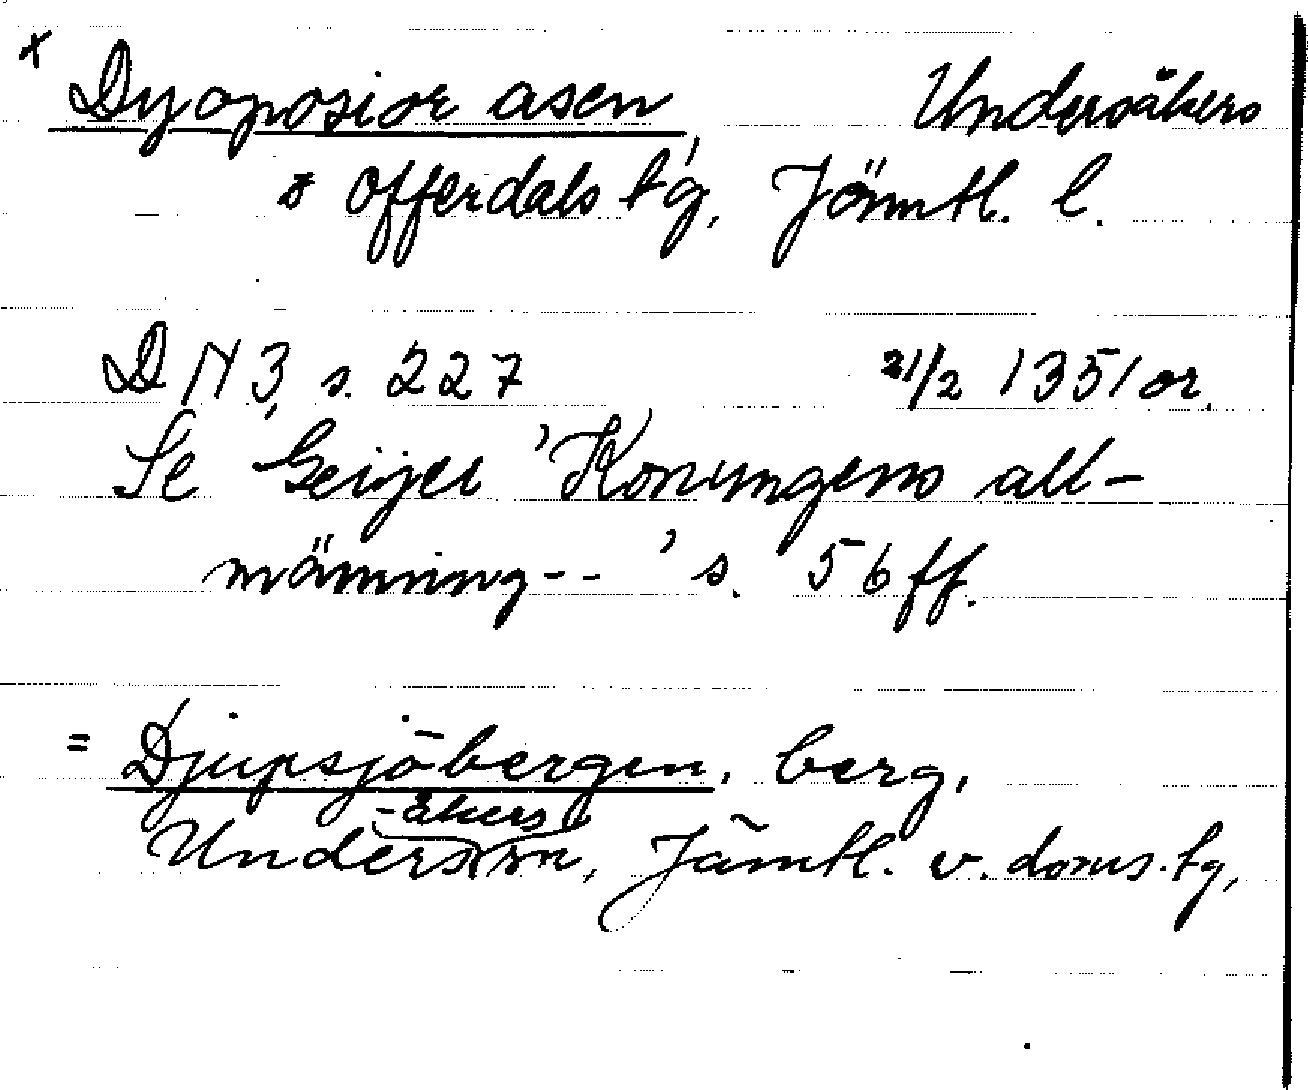 x Dyoposior asen, Undersåkers
o Offerdals tg, Jämtl. l.
D N 3, s. 227 21/2 1351 or.
Se Geijer 'Konungens all-
männing-- ' s. 56 ff.
= Djupsjöbergen, berg,
-åkers
Undersåkers, Jämtl. v. doms. tg,